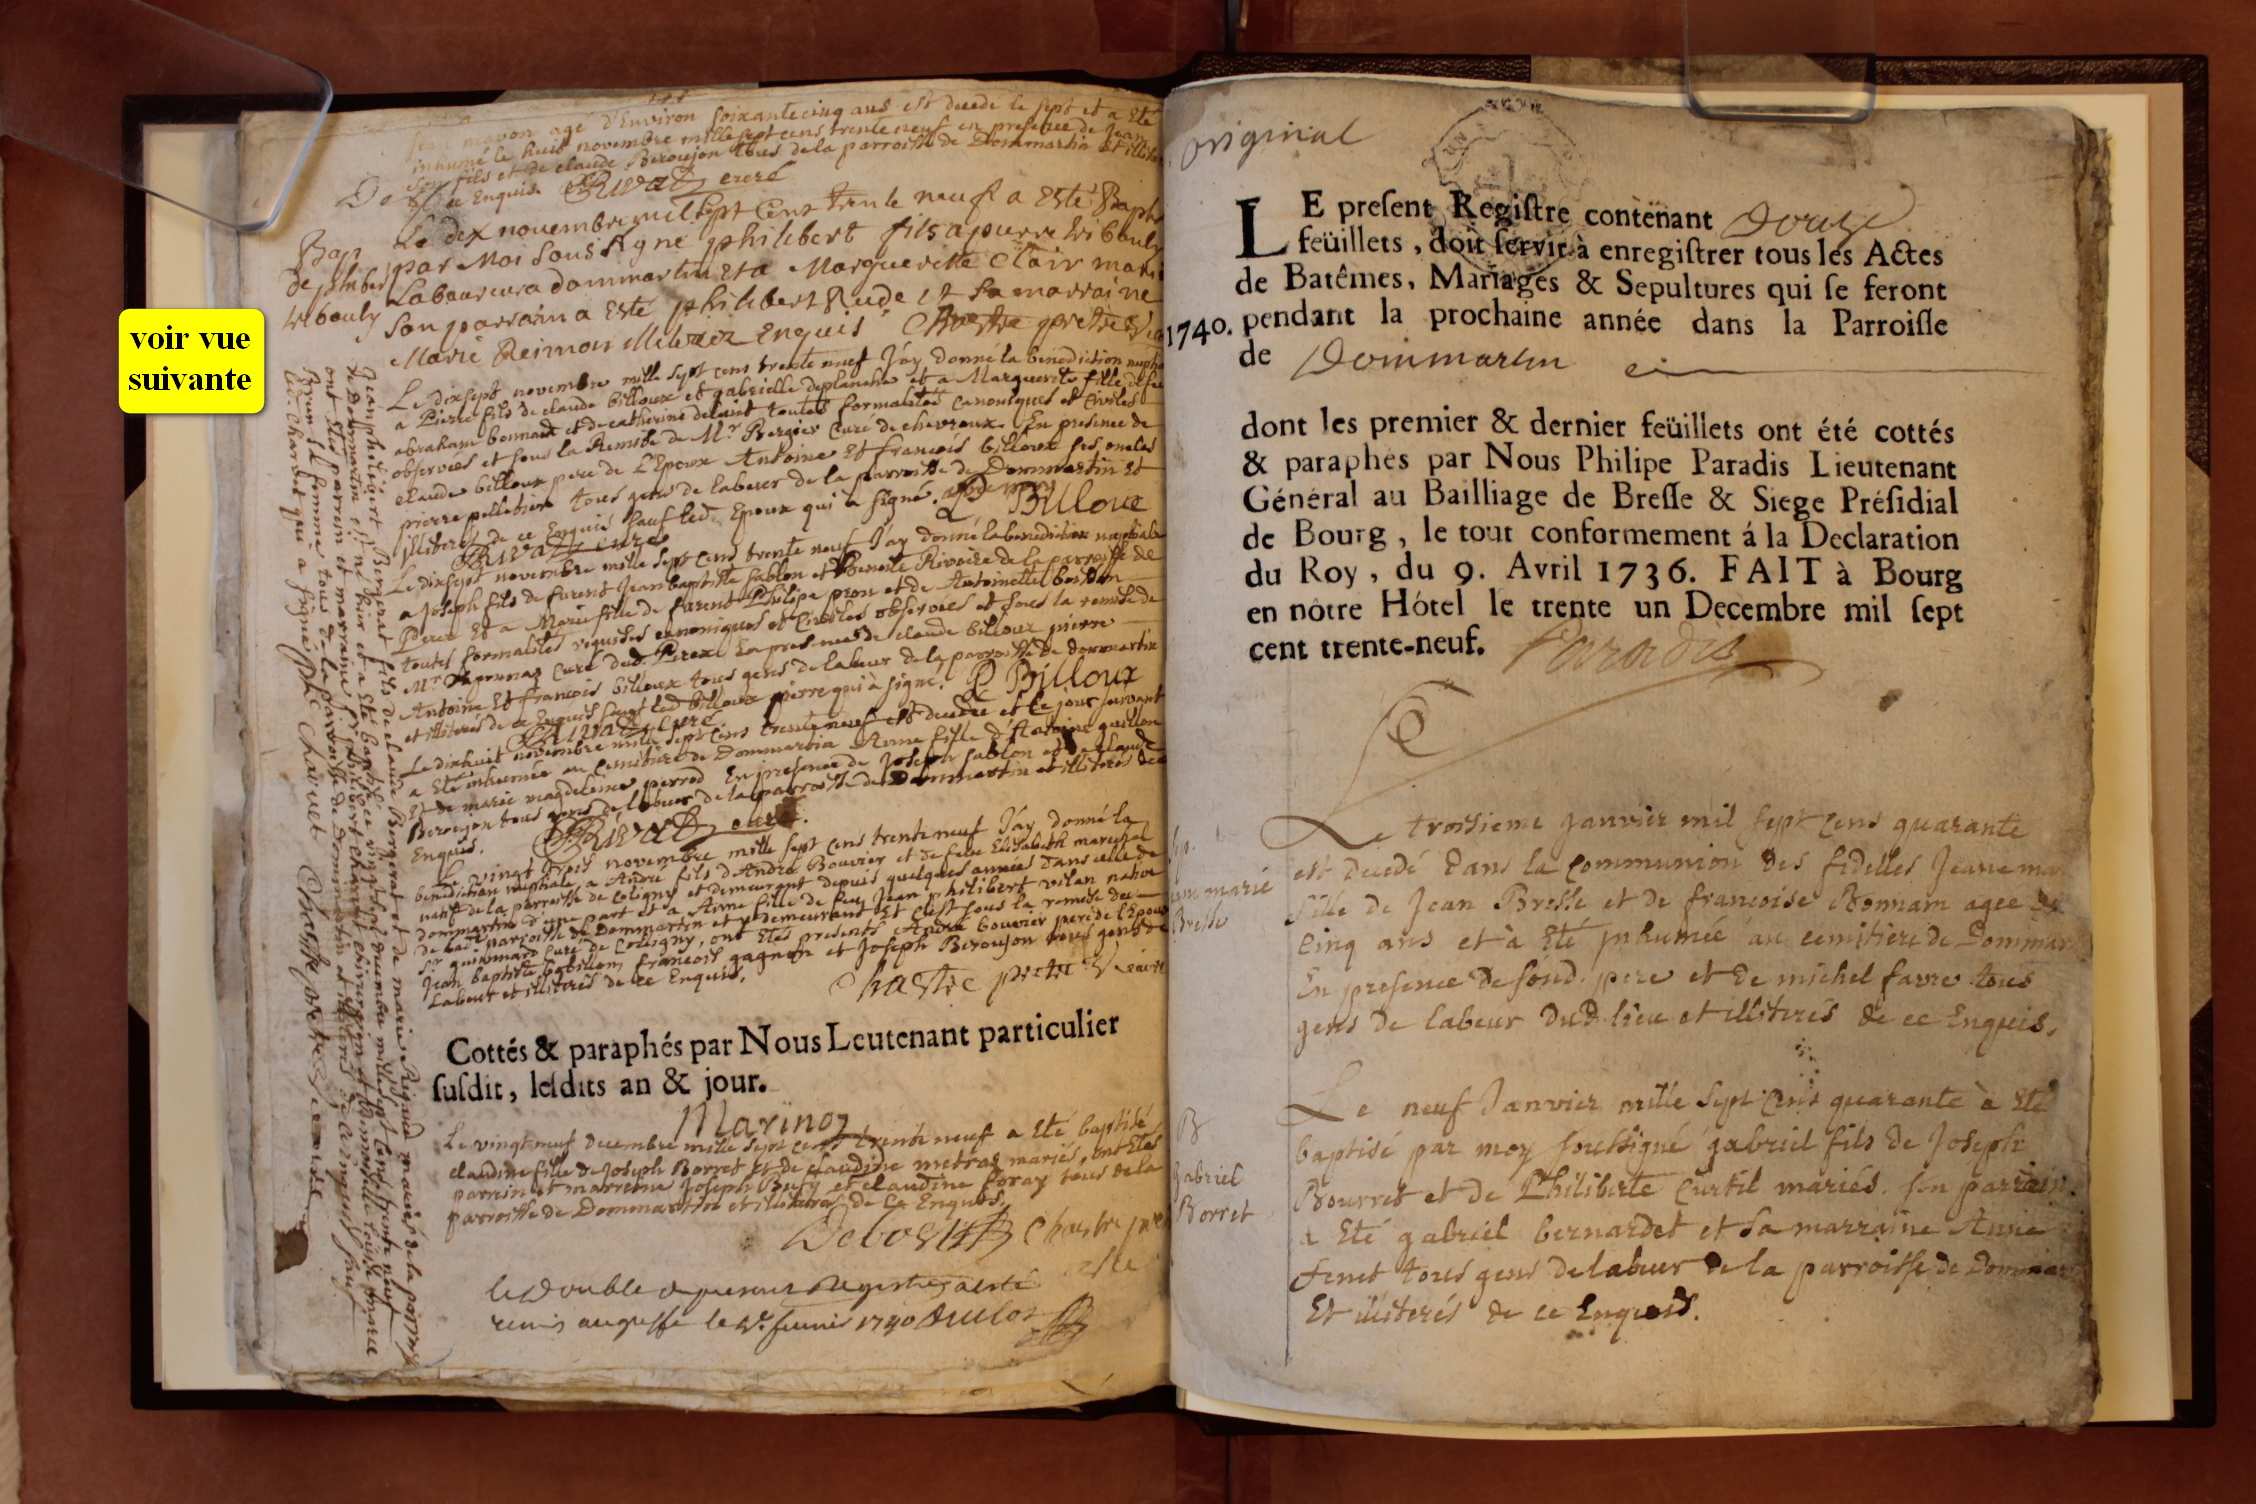 voir vue
suivante
jean moron agé d'Environ soixante cinq ans est decedé le sept et a Eté
inhumé le huit novembre mille sept cens trente neuf en presence de Jean
son fils et de claude Beroujon tous de la parroisse de Dommartin et illite
de ce Enquis. Rivat curé
Le dix novembre mil sept Cens trente neuf a Esté Bapt
Bap
par Moi sous signé philibert fils a pierre tribouly
de philiber
Laboureur a dommartin et a Marguerite Clair mari
tribouly
Son parrain a Esté philibert Rude et Sa marraine
Marie Reimon illiterez Enquis Chastre pretre Vic
Le dixsept novembre mille sept cens trente neuf J'ay donné la benediction nuptia
a Pierre fils de claude billoux et gabrielle deplanche et a Marguerite fille de feu
abraham bonnard et de catherine toutes formalités canoniques et Civiles
observées et sous la Remise de Mr Bergier Curé de chevroux. En presence de
claude billoux pere de L'Epoux Antoine Et francois billoux ses oncles
pierre pelletier tous gens de labeur de la parroisse de Dommartin Et
illiterés de ce Enquis sauf led. Epoux qui a signé. P Billoux
Rivat curé
Le dixsept novembre mille sept cens trente neuf J'ay donné la benediction nuptiale
a Joseph fils de furent Jean baptiste sablon et Benoite Rivoire de la parroisse de
et a Marie fille de furent Philipe pron et de Antoinette
toutes formalités requises canoniques et Civiles observées et sous la remise de
Mr curé dud. En presences de claude billoux pierre
Antoine Et francois billoux tous gens de labeur de la parroisse de dommartin
et illiterés de ce Enquis sauf led billoux pierre qui à signé. P Billoux
Rivat curé
Le dixhuit novembre mille sept cens trente neuf est decedée et le jour suivant
a Eté inhumée au cemitiere de Dommartin Anne fille d'Antoine guillon
Et de marie magdeleine perrod En presence de Joseph sablon et de claude
Beroujon tous gens de labeur de la parroisse de Dommartin et illiterés de ce
Enquis. Rivat curé.
Le vingt trois novembre mille sept cens trente neuf J'ay donné la
benediction nuptiale a André fils d'André Bouvier et de feue Elisabeth marechal
natif de la parroisse de Coligny et demeurant depuis quelques années dans celle de
dommartin d'une part et a Anne fille de feu Jean philibert vilan native
de lad. parroisse de Dommartin et y demeurant Et c'est sous la remise de
Sr guionnard Curé de Coligny, ont Etés presents André bouvier pere de l'Epoux
Jean baptiste francois gagnon et Joseph Beroujon tous gens de
Labeur et illiterés de ce Enquis.
Chastre pretre Vicaire
Cottés & paraphés par Nous Leutenant particulier
susdit, lesdits an & jour.
Marinon
Le vingt neuf decembre mille sept cens trente neuf a Eté baptisé
claudine fille de Joseph Borret et de claudine metras mariés, ont Etés
parrein et marreine Joseph Bufy et claudine foray tous de la
parroisse de Dommartin et illiterés de ce Enquis.
Chastre
le double du present Registre a esté
remis au greffe le 4e fevrier 1740
Jean philibert fils de claude Bergerat et de marie Rigaud mariés de la parroisse
de Dommartin est né hier et a Eté baptisé ce vingt decembre mille sept cens trente neuf
ont Etés parrein et marreine philibert charvet chirurgien et marie
Brun sa femme tous de la parroisse de Dommartin et illiterés de ce Enquis sauf
led. charvet qui a signé. Phe Charvet Chastre pretre Vicaire
original
LE present Registre contenant Douze
feüillets, doit servir à enregistrer tous les Actes
de Batêmes, Mariages & Sepultures qui se feront
1740. pendant la prochaine année dans la Parroisse
de Dommartin
dont les premier & dernier feüillets ont été cottés
& paraphés par Nous Philipe Paradis Lieutenant
Général au Bailliage de Bresse & Siege Présidial
de Bourg, le tout conformement á la Declaration
du Roy, du 9. Avril 1736. FAIT à Bourg
en nôtre Hôtel le trente un Decembre mil sept
cent trente-neuf. Paradis
Le troisieme Janvier mil sept Cens quarante
est decedé dans la Communion des fidelles Jeanne mar
jeanne marie
fille de Jean Bresse et de francoise Bonnam agée de
Bresse
Cinq ans et à Eté inhumée au cemitiere de Dommar
En presence de sond. pere et de michel favre tous
gens de labeur dud. lieu et illiterés de ce Enquis.
Le neuf Janvier mille sept Cens quarante à Eté
B
baptisé par moy soussigné gabriel fils de Joseph
gabriel
Bourret et de Philiberte Curtil mariés. son parrain
Borret
a Eté gabriel bernardet et sa marraine Anne
fenet tous gens de labeur de la parroisse de Dommar
Et illiterés de ce Enquis.